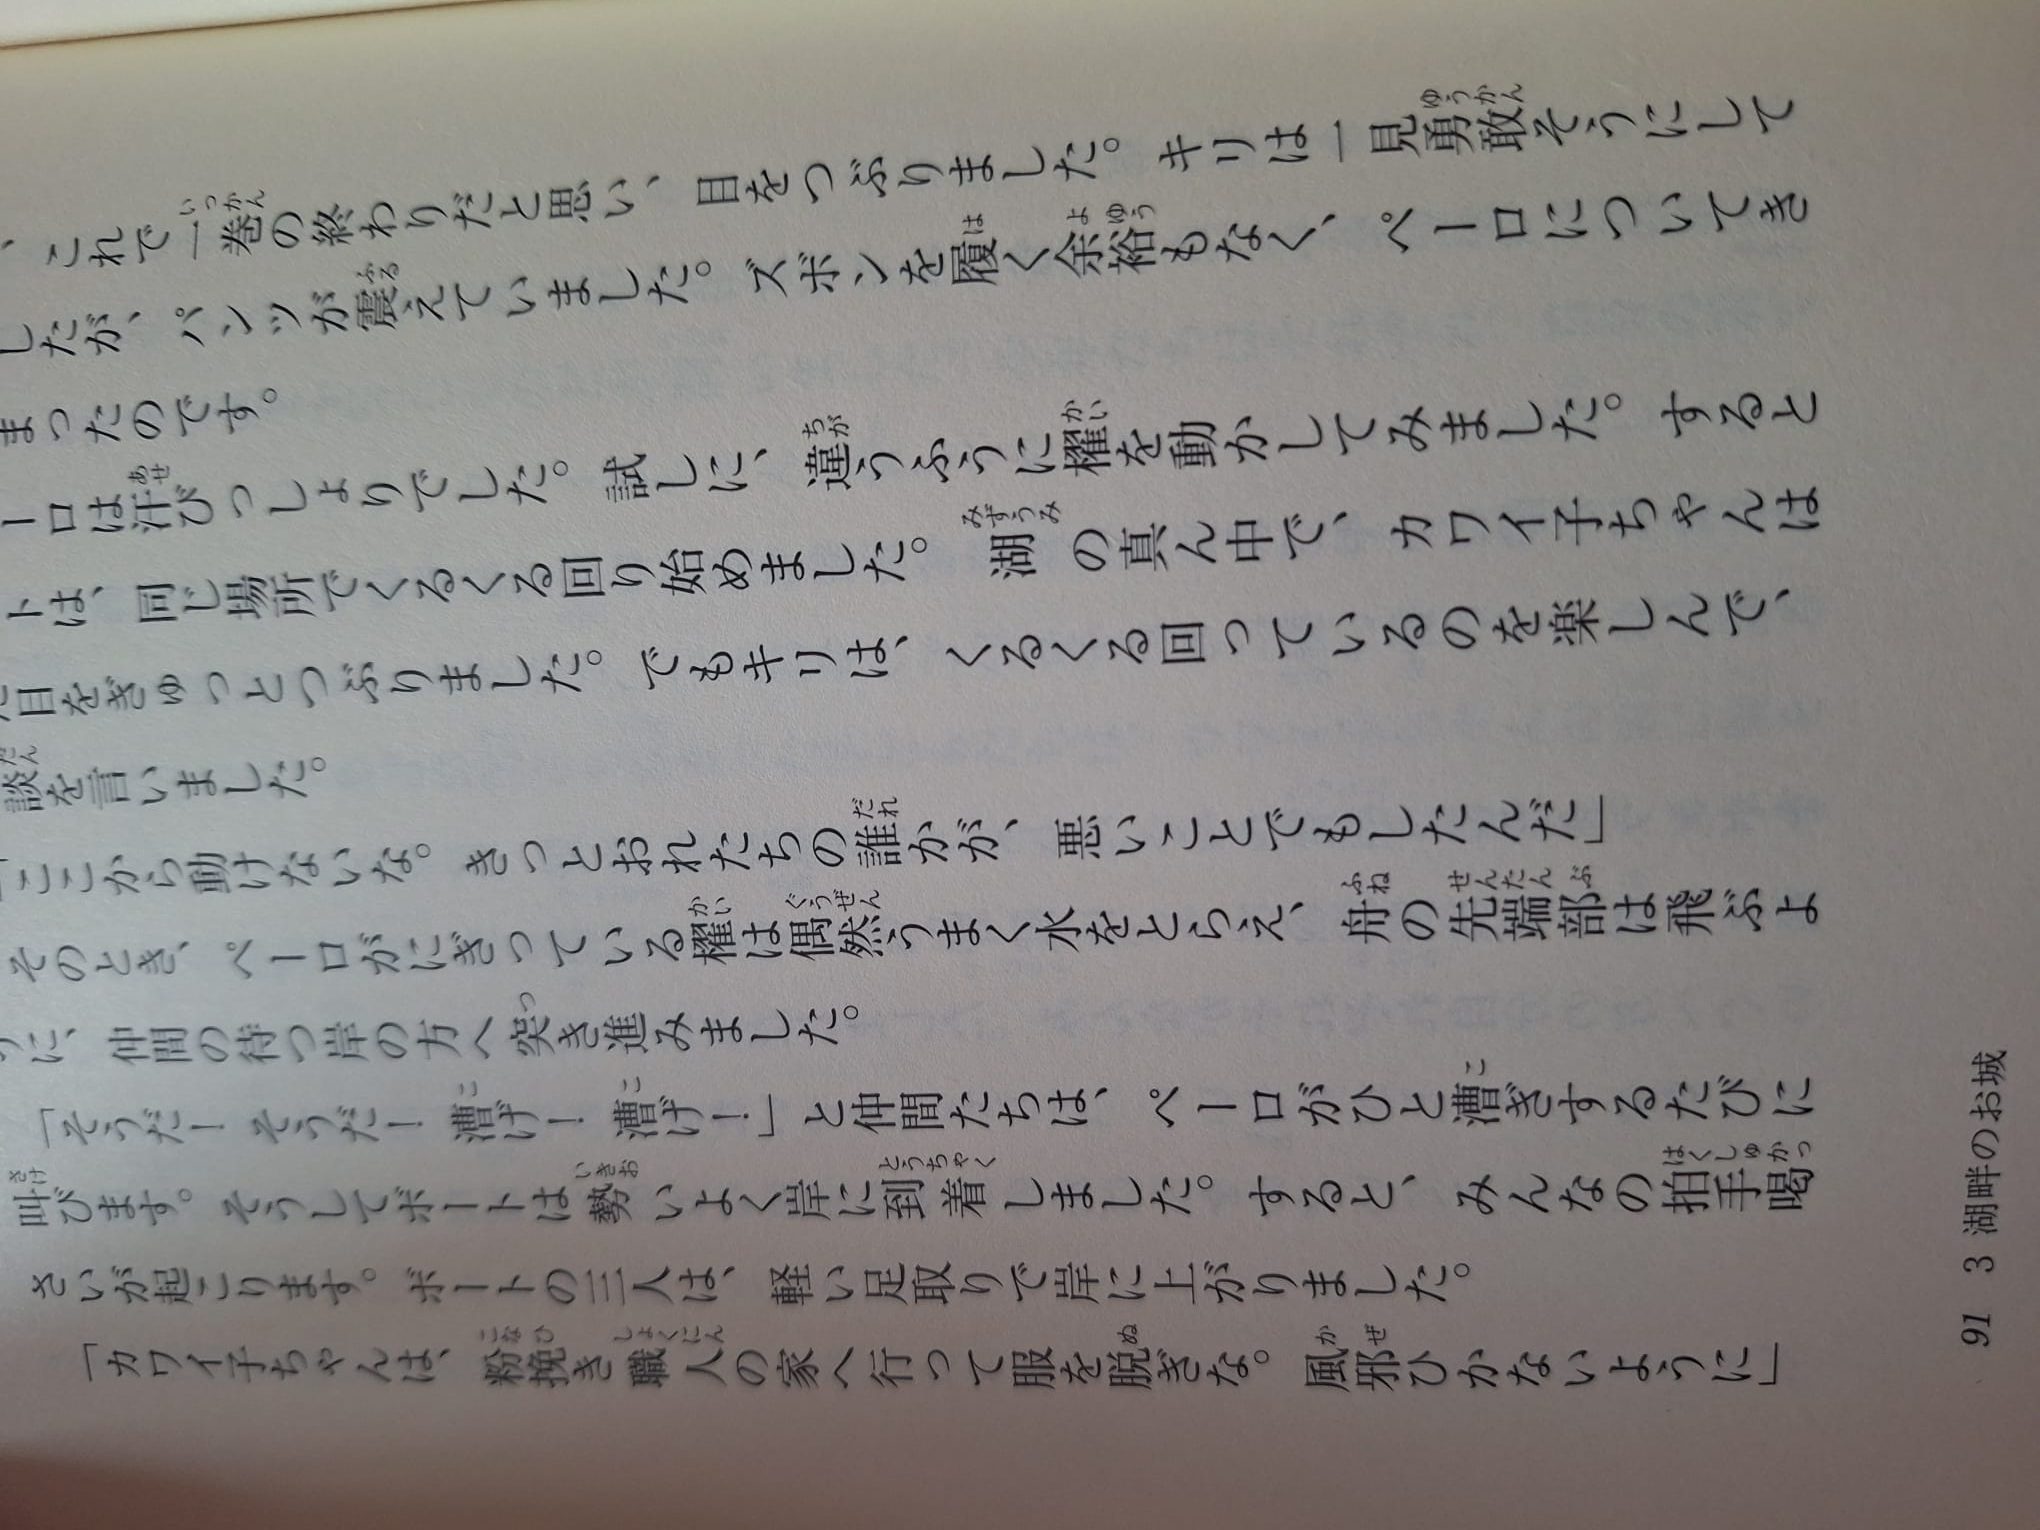 、これで一巻の終わりだと思い、目をつぶりました。キリは一見勇敢そうにして
したが、パンツが震えていました。ズボンを履く余裕もなく、ペーロについてき
まったのです。
ーロは汗びっしょりでした。試しに、違うふうに櫂を動かしてみました。すると
トは、同じ場所でくるくる回り始めました。湖の真ん中で、カワイ子ちゃんは
た目をぎゅっとつぶりました。でもキリは、くるくる回っているのを楽しんで、
談を言いました。
「ここから動けないな。きっとおれたちの誰かが、悪いことでもしたんだ」
そのとき、ペーロがにぎっている櫂は偶然うまく水をとらえ、舟の先端部は飛ぶよ
うに、仲間の待つ岸の方へ突き進みました。
「そうだ！そうだ！漕げ！漕げ！」と仲間たちは、ペーロがひと漕ぎするたびに
叫びます。そうしてボートは勢いよく岸に到着しました。すると、みんなの拍手喝
さいが起こります。ボートの三人は、軽い足取りで岸に上がりました。
「カワイ子ちゃんは、粉挽き職人の家へ行って服を脱ぎな。風邪ひかないように」
91 3 湖畔のお城